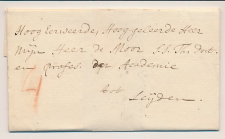 Hoog Eerweerde, Hoog geleerde Heer
Mijn Heer de Moor S.S. Th. Doct.
en profes. der Academie
tot
Leijden.